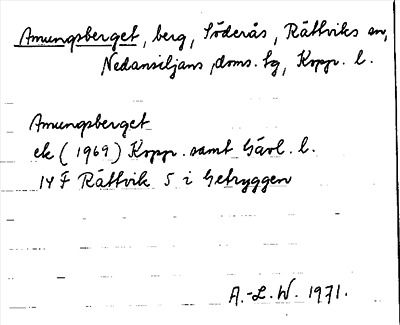 Amungsberget, berg, Söderås, Rättviks sn,
Nedansiljans doms. tg, Kopp. l.
Amungsberget
ek (1969) Kopp. samt Gävl. l.
14 F Rättvik S i Getryggen
A.-L. W. 1971.